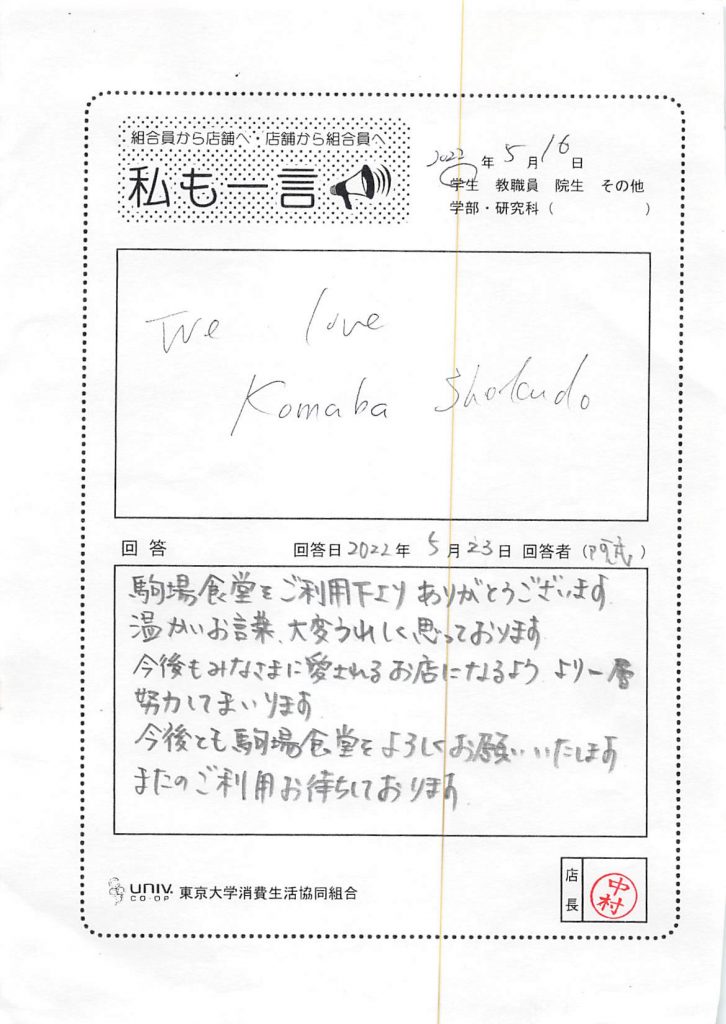 組合員から店舗へ・店舗から組合員へ
私も一言
2022年5月16日
学生 教職員 院生 その他
学部・研究科( )
We love
Komaba Shokudo
回答 回答日2022年5月23日 回答者( )
駒場食堂をご利用下さり ありがとうございます
温かいお言葉、大変うれしく思っております
今後もみなさまに愛されるお店になるよう より一層
努力してまいります
今後とも駒場食堂をよろしくお願いいたします
またのご利用お待ちしております
UNIV. CO-OP 東京大学消費生活協同組合
店長
中村